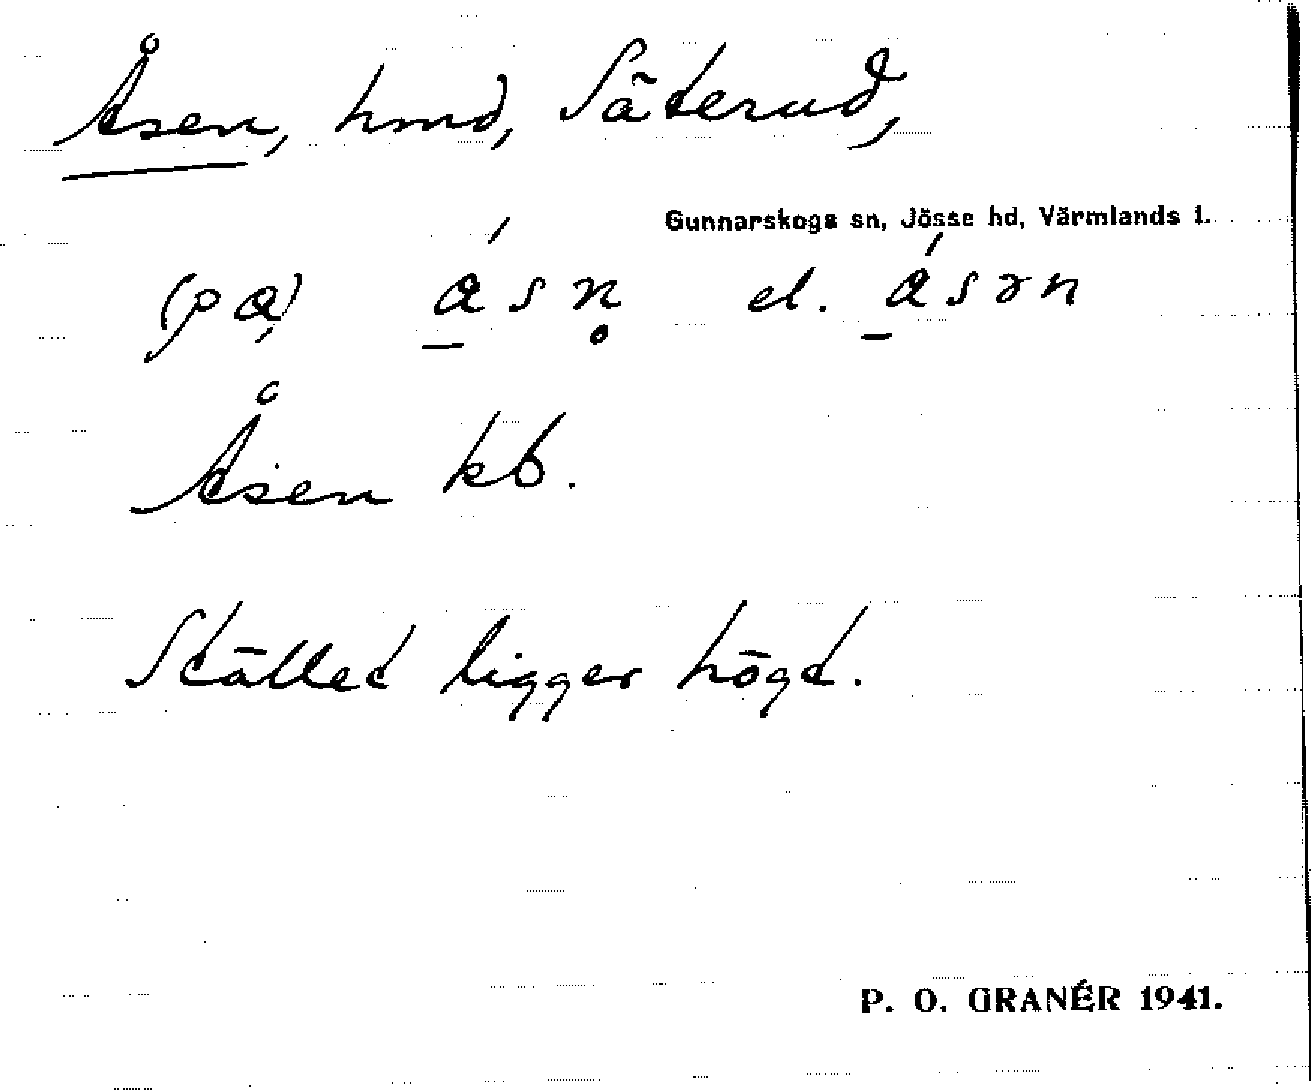 Åsen, hmd, Säterud,
Gunnarskogs sn, Jösse hd, Värmlands l.
(på) åsn̥ el. åsən
Åsen kb.
Stället ligger högt.
P. O. GRANÉR 1941.